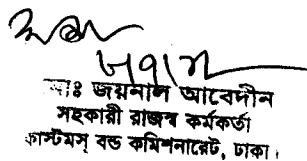 মোঃ জয়নাল আবেদীন
সহকারী রাজস্ব কর্মকর্তা
কাস্টমস্ বন্ড কমিশনারেট, ঢাকা।